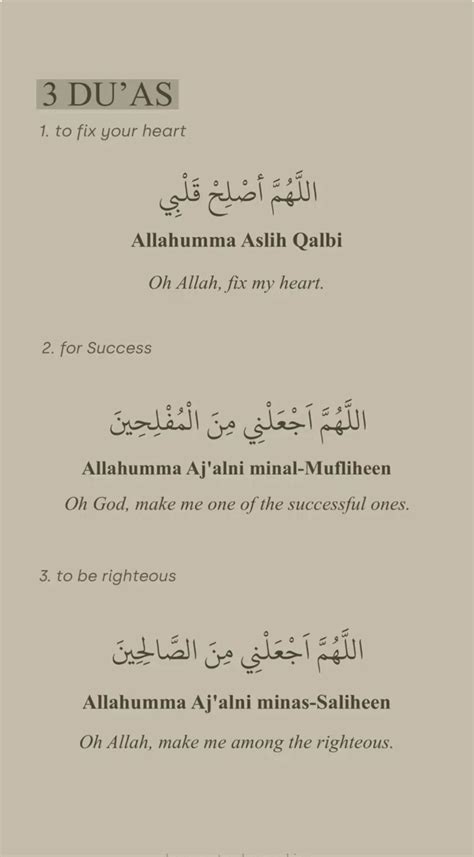 3 DU’AS
1. to fix your heart
اللَّهُمَّ أصْلِحْ قَلْبِي
Allahumma Aslih Qalbi
Oh Allah, fix my heart.
2. for Success
اللَّهُمَّ اَجْعَلْنِي مِنَ الْمُفْلِحِينَ
Allahumma Aj'alni minal-Mufliheen
Oh God, make me one of the successful ones.
3. to be righteous
اللَّهُمَّ اَجْعَلْنِي مِنَ الصَّالِحِينَ
Allahumma Aj'alni minas-Saliheen
Oh Allah, make me among the righteous.